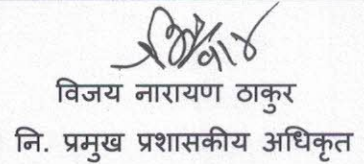 विजय नारायण ठाकुर
नि. प्रमुख प्रशासकीय अधिकृत